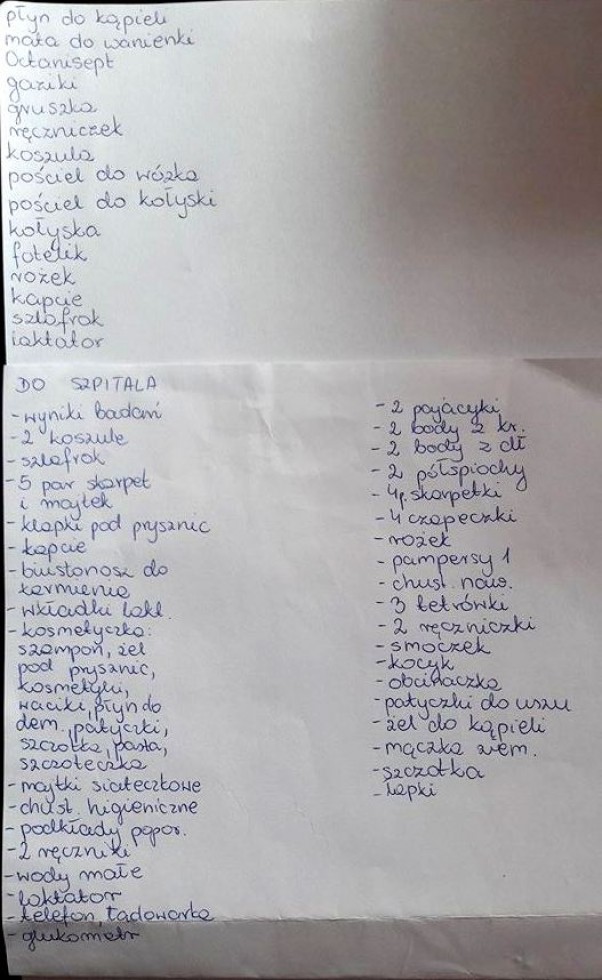 płyn do kąpieli
mata do wanienki
Octanisept
gaziki
gruszka
ręczniczek
koszula
pościel do wózka
pościel do kołyski
kołyska
fotelik
rożek
kapcie
szlafrok
laktator
DO SZPITALA
- wyniki badań
- 2 koszule
- szlafrok
- 5 par skarpet
i majtek
- klapki pod prysznic
- kapcie
- biustonosz do
karmienia
- wkładki lakt.
- kosmetyczka:
szampon, żel
pod prysznic,
kosmetyki,
waciki, płyn do
dem., patyczki,
szczotka, pasta,
szczoteczka
- majtki siateczkowe
- chust. higieniczne
- podkłady popor.
- 2 ręczniki
- wody małe
- laktator
- telefon, ładowarka
- glukometr
- 2 pajacyki
- 2 body z kr.
- 2 body z dł
- 2 półśpiochy
- 4p. skarpetki
- 4 czapeczki
- rożek
- pampersy 1
- chust. naw.
- 3 tetrówki
- 2 ręczniczki
- smoczek
- kocyk
- obcinaczka
- patyczki do uszu
- żel do kąpieli
- mączka ziem.
- szczotka
- łapki